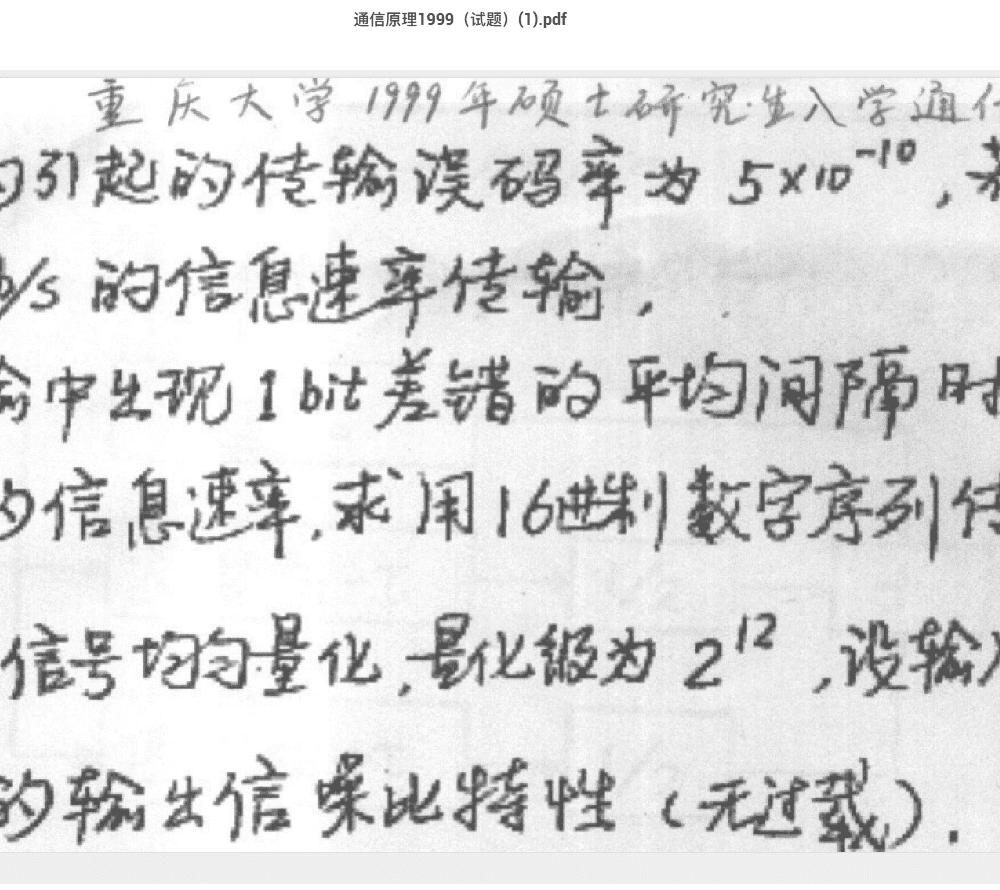 通信原理1999（试题）(1).pdf
重庆大学1999年硕士研究生入学通
引起的传输误码率为 5×10⁻¹⁰,
b/s 的信息速率传输,
中出现 1 bit 差错的平均间隔时
的信息速率,求用16进制数字序列传
信号均匀量化,量化级为 2¹² ,设输入
的输出信噪比特性 (无过载).